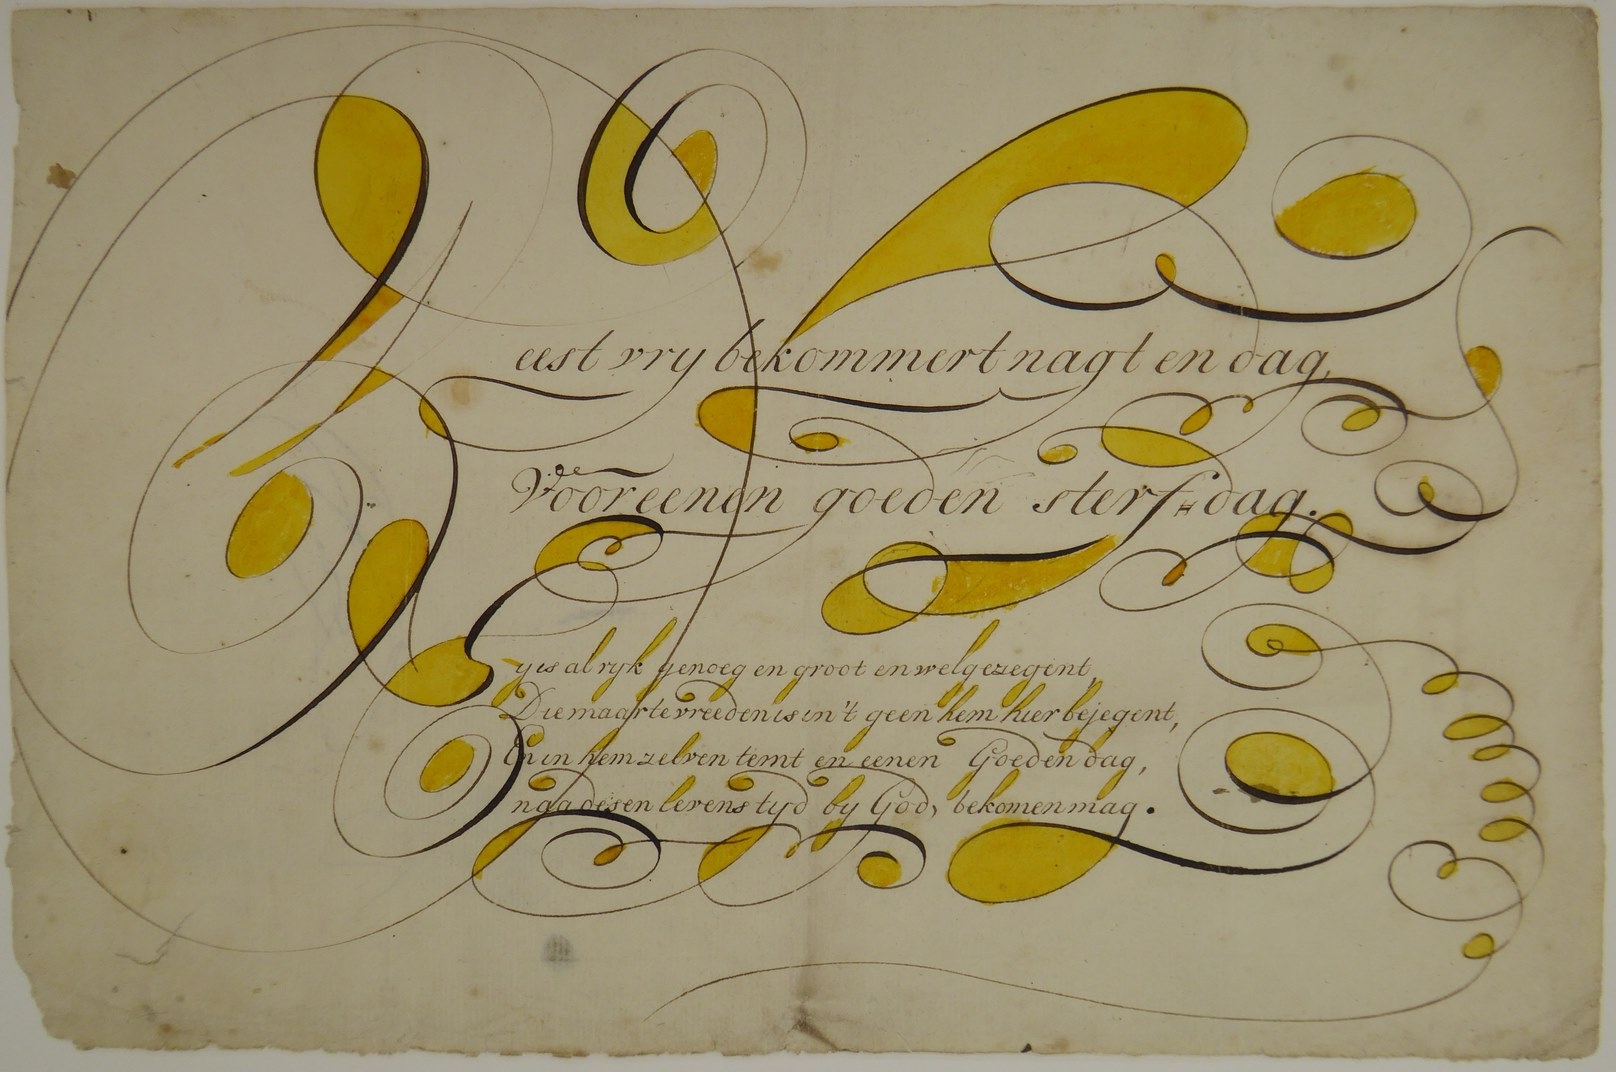 Weest vry bekommert nagt en dag,
Voor eenen goeden sterf=dag.
Hy is al ryk genoeg en groot en wel gezegent,
Die maar te vreeden is in't geen hem hier bejegent,
En in hem zelven temt en eenen Goeden dag,
naa desen levens tyd by God, bekomen mag.